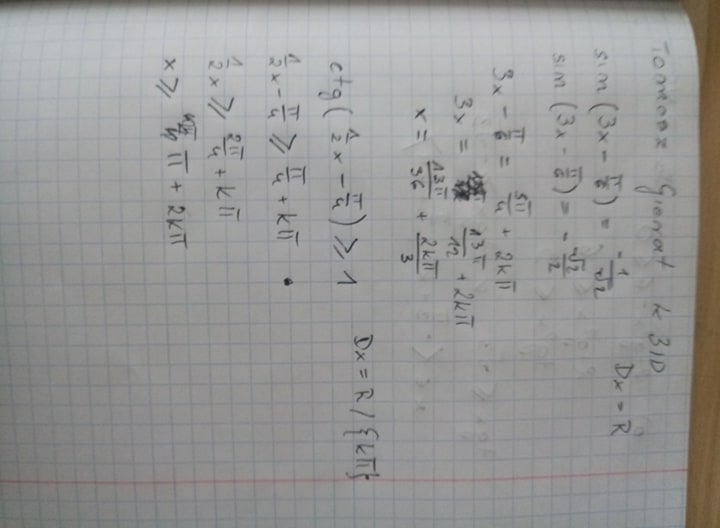 k 3ID
Dx = R
sin (3x - π/6) = -1/√2
sin (3x - π/6) = - √2/2
3x - π/6 = 5π/4 + 2kπ
3x = 13π/12 + 2kπ
x = 13π/36 + 2kπ/3
ctg (1/2 x - π/4) ≥ 1 Dx = R / {kπ}
1/2 x - π/4 ≥ π/4 + kπ
1/2 x ≥ 2π/4 + kπ
x ≥ π + 2kπ